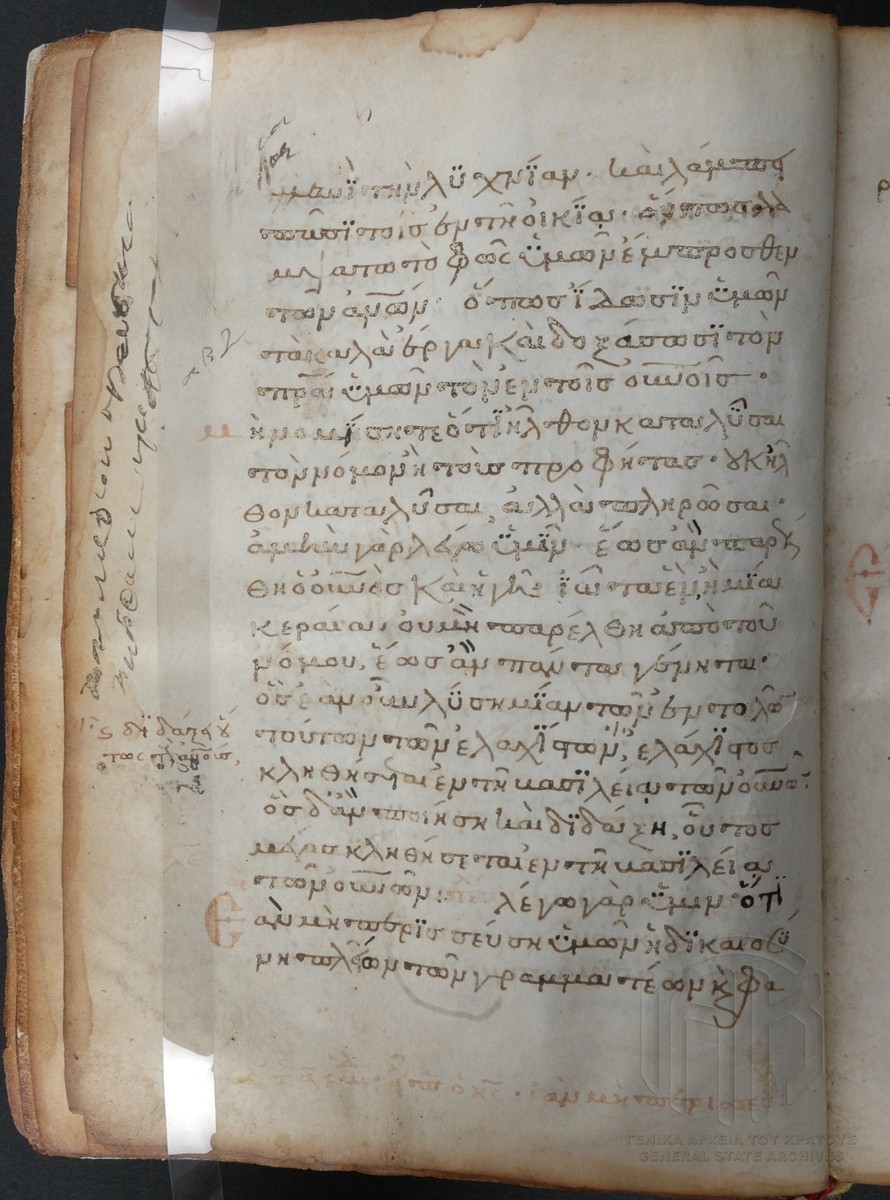 ἐπὶ τὴν λϋχνΐαν· καὶ λάμπει
πᾶσϊ τοῖς ἐν τῆ οἰκΐα· οὕτως
λαμψάτω τὸ φῶς ϋμῶν ἔμπροσθεν
τῶν ἀνῶν· ὅπως ΐδωσϊν ϋμῶν
τὰ καλὰ ἔργα καὶ δοξάσωσϊ τὸν
πρᾶ ϋμῶν τὸν ἐν τοῖς οὐνοῖς·
μὴ νομίσητε ὅτϊ ἦλθον καταλῦσαι
τὸν νόμον ἢ τοὺς προφήτας· ουκ ἦλ
θον καταλῦσαι, ἀλλὰ πληρῶσαι·
ἀμὴν γὰρ λέγω ϋμῖν· ἕως ἂν παρέλ
θη ὁ οὐνὸς καὶ ἡ γῆ· ϊῶτα ἓν ἢ μΐα
κεραία ου μὴ παρέλθη ἀπὸ τοῦ
νόμου, ἕως ἂν πάντα γένηται·
ὃς ἐὰν οὖν λϋση μΐαν τῶν ἐντολῶν
τούτων τῶν ἐλαχΐστων, ἐλάχϊστος
κληθήσεται ἐν τῆ βασϊλεία τῶν οὐνῶν·
ὃς δ' ἂν ποιήση καὶ δϊδάξη, οὗτος
μέγας κληθήσεται ἐν τῆ βασϊλεία
τῶν οὐνῶν· λέγω γὰρ ϋμῖν ὅτϊ
ἐὰν μὴ περϊσσεύση ϋμῶν ἡ δϊκαιοσϋ
νη πλέον τῶν γραμματέων κ φα
ΓΕΝΙΚΑ ΑΡΧΕΙΑ ΤΟΥ ΚΡΑΤΟΥΣ
GENERAL STATE ARCHIVES